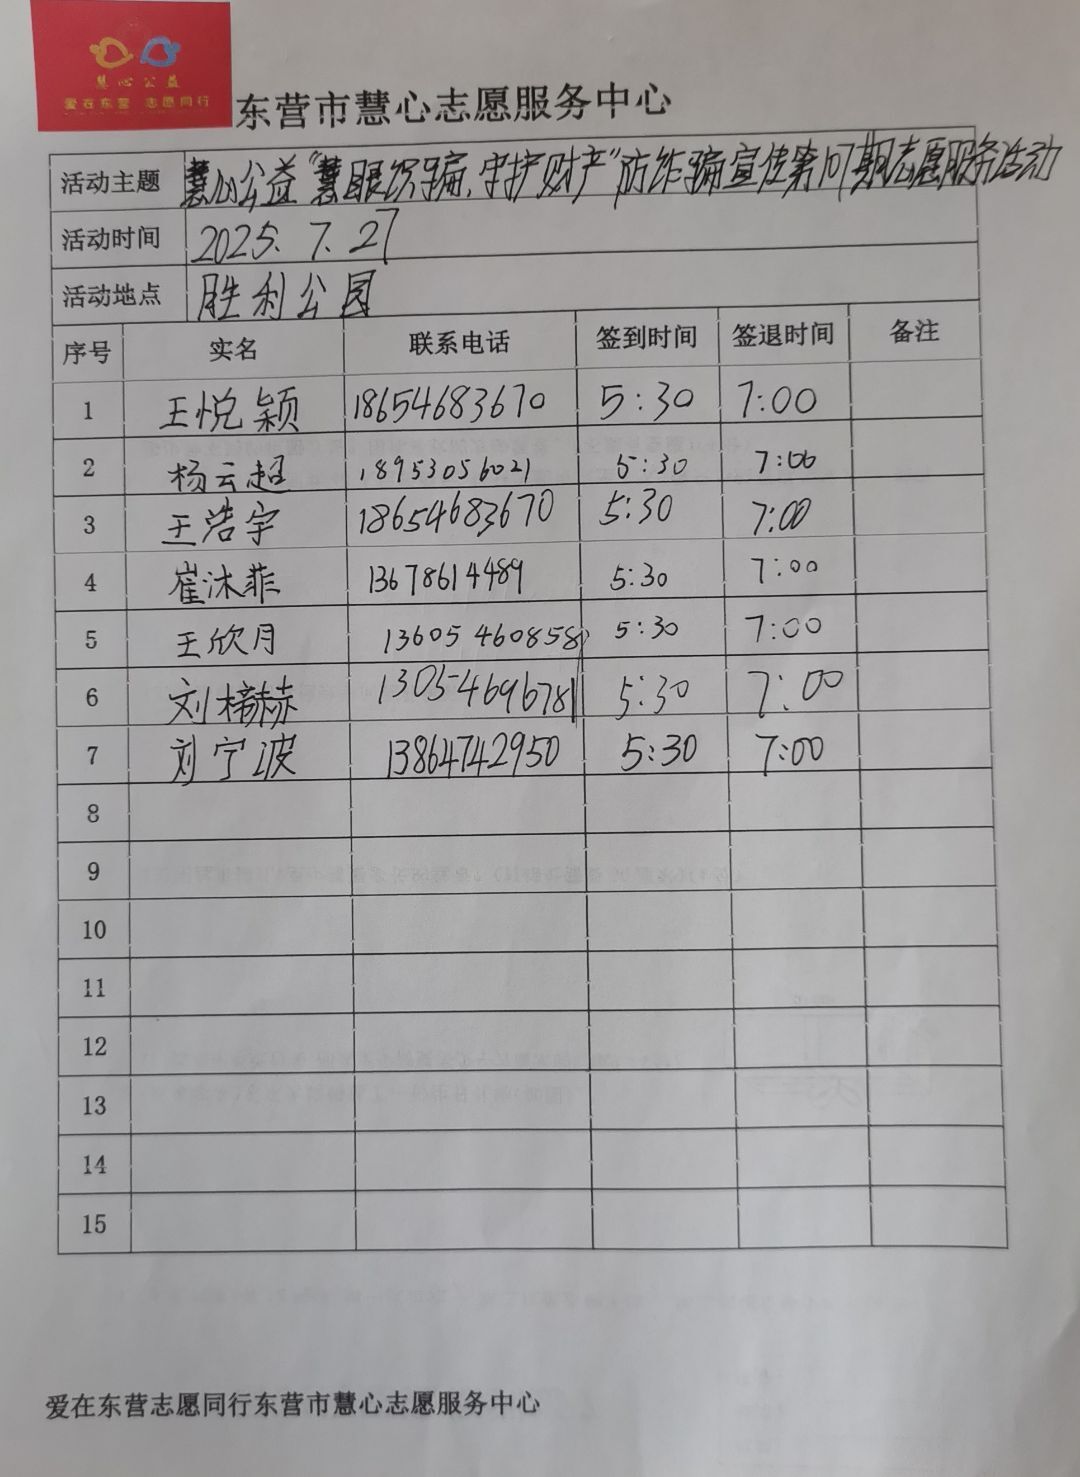 慧心公益
爱在东营 志愿同行
东营市慧心志愿服务中心
活动主题 慧心公益“慧眼识骗,守护财产”防诈骗宣传第101期志愿服务活动
活动时间 2025.7.27
活动地点 胜利公园
序号 实名 联系电话 签到时间 签退时间 备注
1 王悦颖 18654683670 5:30 7:00
2 杨云超 18953056021 5:30 7:00
3 王浩宇 18654683670 5:30 7:00
4 崔沐菲 13678614489 5:30 7:00
5 王欣月 13605460858 5:30 7:00
6 刘梓赫 13054696781 5:30 7:00
7 刘宁波 13864742950 5:30 7:00
8
9
10
11
12
13
14
15
爱在东营志愿同行东营市慧心志愿服务中心